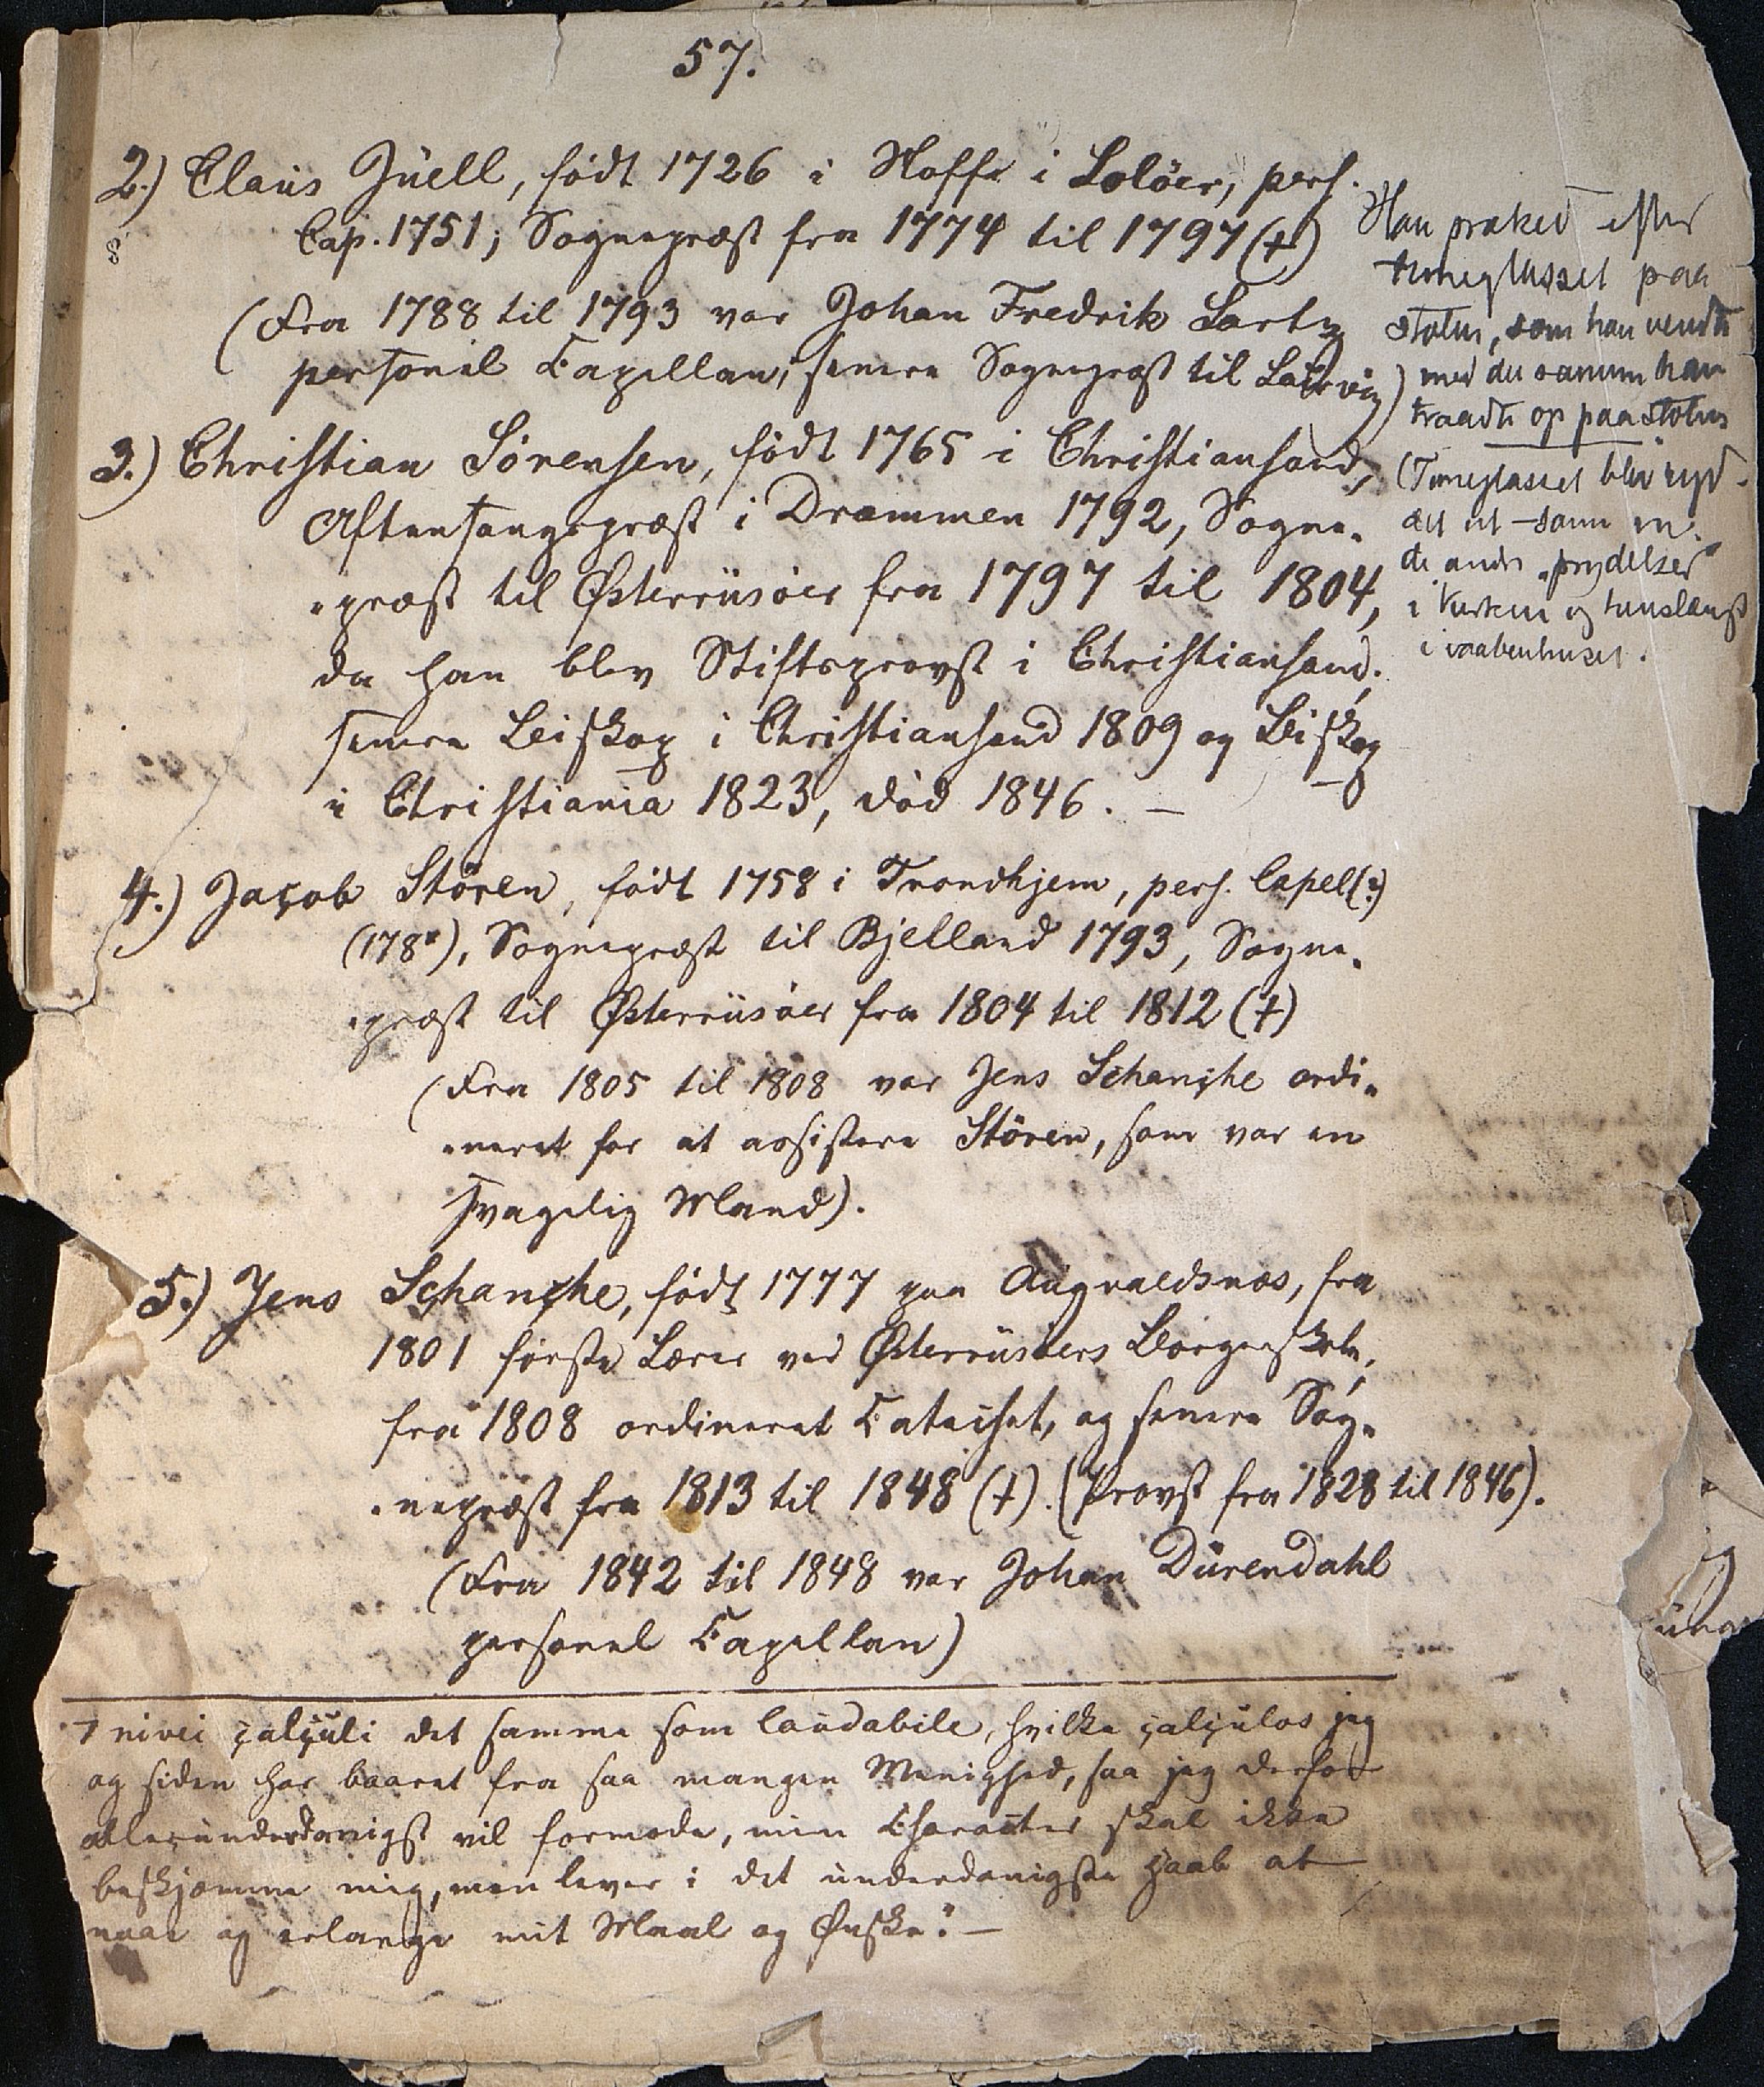 57.
2.) Claus Juell, født 1726 i Hoffe i Solöer, pers.
Cap. 1751; Sognepræst fra 1774 til 1797 (†)
(Fra 1788 til 1793 var Johan Fredrik Sartz
personel Capellan, senere Sognepræst til Laurvig)
3.) Christian Sörensen, født 1765 i Christiansand,
Aftensangspræst i Drammen 1792, Sogne-
-præst til Østerriisöer fra 1797 til 1804,
da han blev Stiftsprovst i Christiansand,
senere Biskop i Christiansand 1809 og Biskop
i Christiania 1823, död 1846. —
4.) Jacob Stören, født 1758 i Trondhjem, pers. Capel(?)
(178*), Sognepræst til Bjelland 1793, Sogne-
-præst til Østerriisöer fra 1804 til 1812 (†)
(Fra 1805 til 1808 var Jens Schanche ordi-
-neret for at assistere Stören, som var en
svagelig Mand).
5.) Jens Schanche, født 1777 paa Augvaldsnæs, fra
1801 første Lærer ved Østerriisöers Borgerskole,
fra 1808 ordineret Catechet, og senere Sog-
-nepræst fra 1813 til 1848 (†). (Provst fra 1828 til 1846).
(Fra 1842 til 1848 var Johan Dürendahl
personel Capellan)
nivei calculi det samme som laudabile, hvilke calculos jeg
og siden har baaret fra saa mangen Menighed, saa jeg derfor
allerunderdanigst vil formode, min Character skal ikke
beskjæmme mig, men lever i det underdanigste Haab at
naae og erlange mit Maal og Ønske." —
Han præked efter
timeglasset paa
stolen, som han vendte
med det samme han
traadte op paa stolen
(Timeglasset blev ryd-
det ut - som en
de andre "prydelser"
i kirken og henslængt
i vaabenhuset.